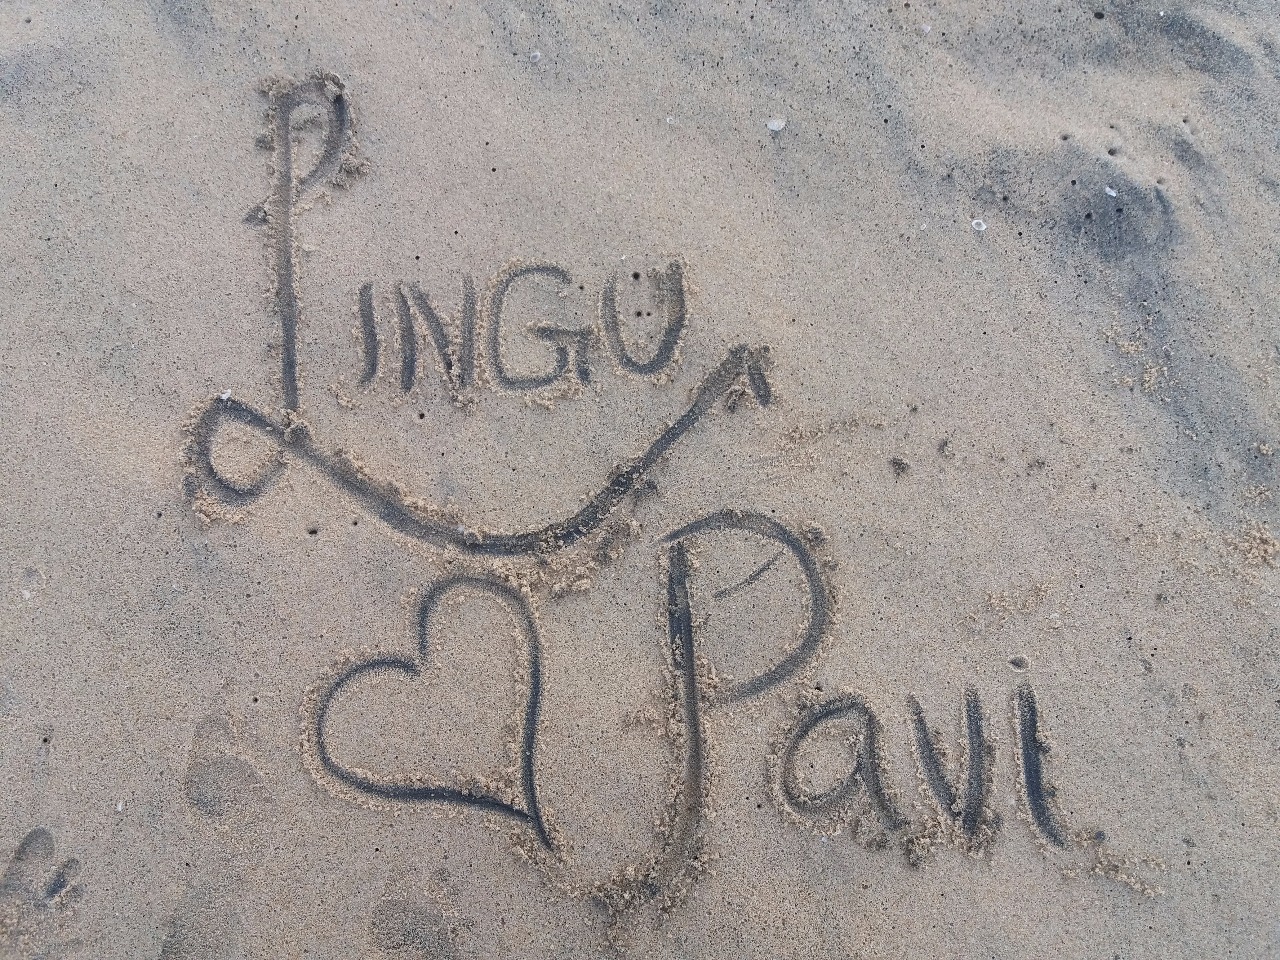 LINGU
Pavi